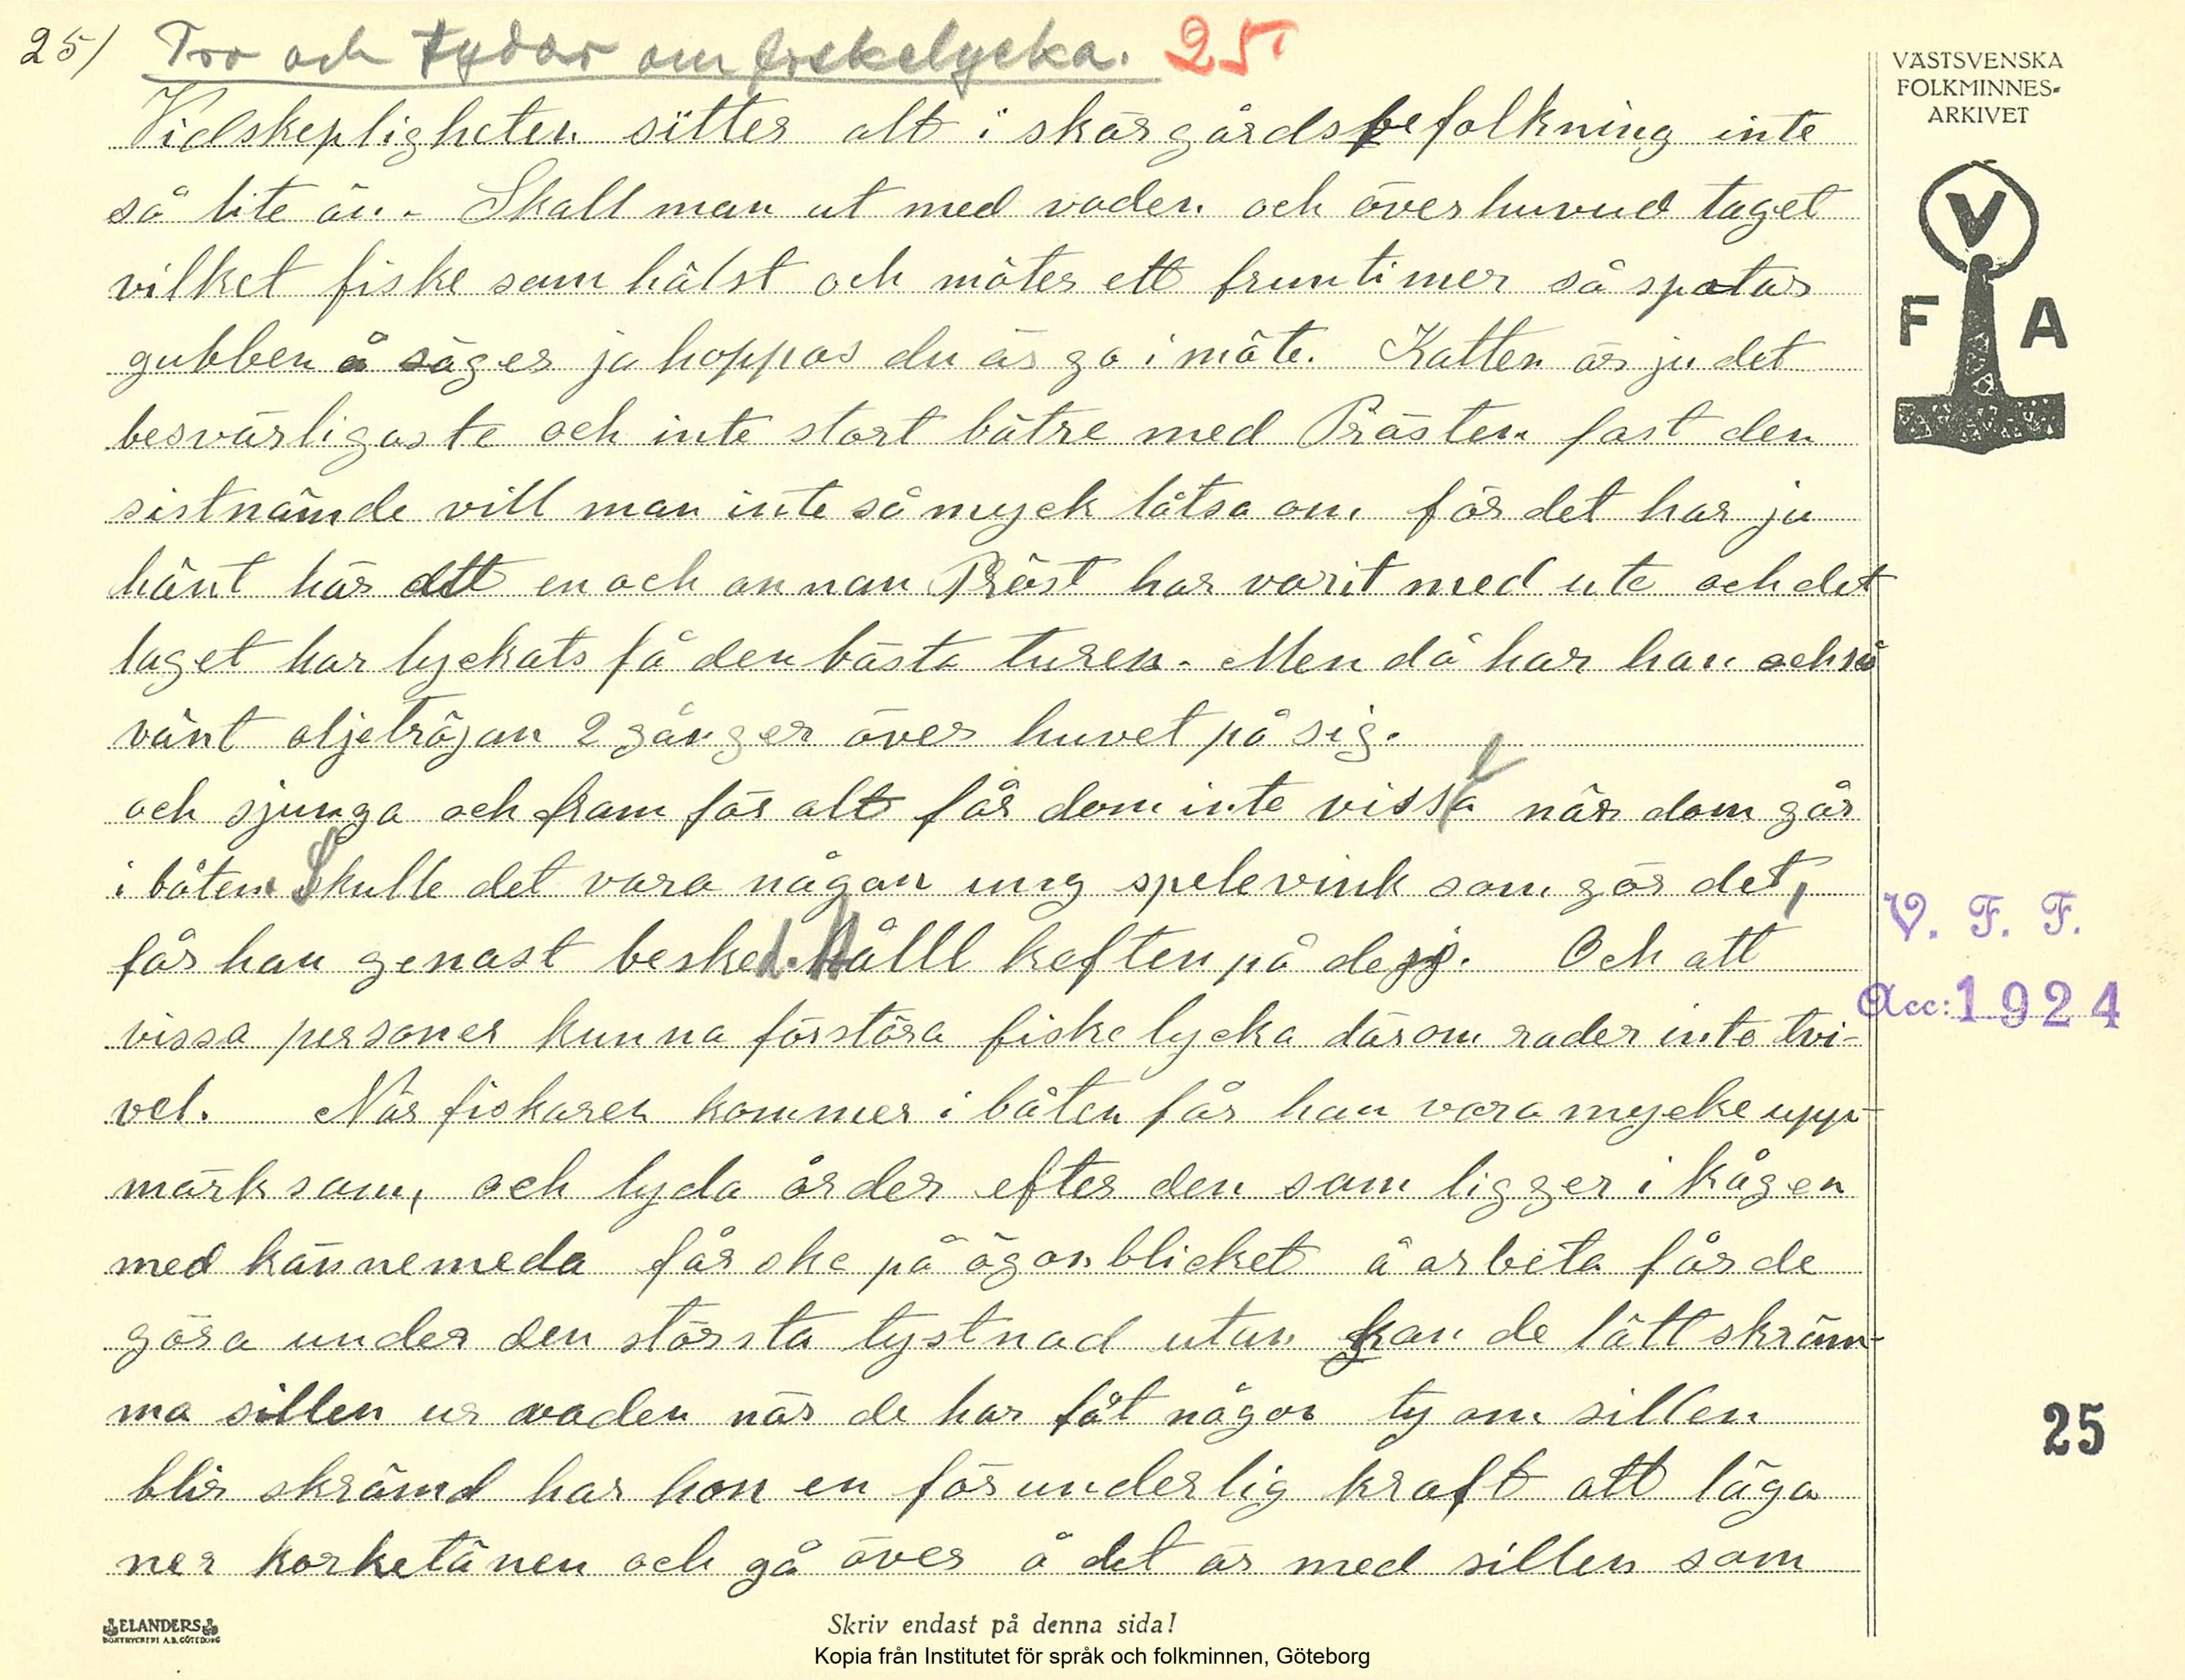 25/ Tro och tydor om fiskelycka. 25
VÄSTSVENSKA
FOLKMINNES-
ARKIVET
V
F A
Vidskepligheten sitter alt i skärgårdsbefolkning inte
så lite än. Skall man ut med vaden och över huvud taget
vilket fiske som hälst och möter ett fruntimer så spotar
gubben å säger ja hoppas du är go i möte. Katten är ju det
besvärligaste och inte stort bätre med Prästen fast den
sistnämde vill man inte så myck låtsa om för det har ju
hänt här att en och annan Präst har varit med ute och det
laget har lyckats få den bästa turen. Men då har han också
vänt oljetröjan 2 gånger över huvet på sig.
och sjunga och fram för alt får dom inte vissla när dom går
i båten Skulle det vara någon ung spelevink som gör det,
får han genast besked. Hålll keften på dejj. Och att
vissa personer kunna förstöra fiskelycka därom rader inte tvi-
vel. När fiskaren kommer i båten får han vara mycke upp-
märksam, och lyda order efter den som ligger i kågen
med kännemeda får ske på ögonblicket å arbeta får de
göra under den största tystnad utan kan de lätt skräm-
ma sillen ur vaden när de har fåt någon ty om sillen
blir skrämd har hon en förunderlig kraft att läga
ner korketänen och gå över å det är med sillen som
V. F. F.
Acc: 1924
25
ELANDERS
BOKTRYCKERI A.B. GÖTEBORG
Skriv endast på denna sida!
Kopia från Institutet för språk och folkminnen, Göteborg